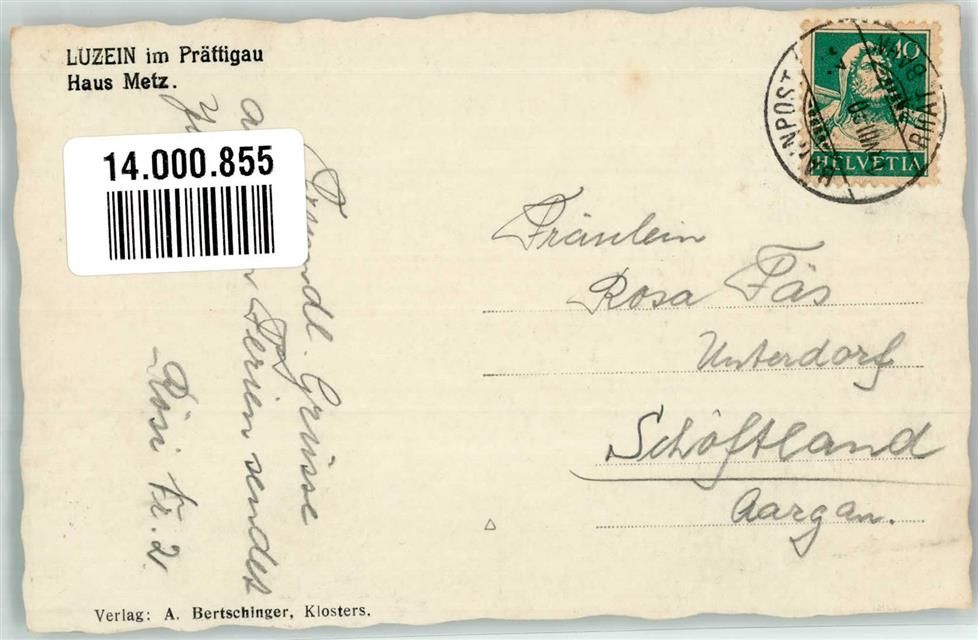 LUZEIN im Prättigau
Haus Metz.
14.000.855
Freundl. Grüsse
Ferien sendet
Rösi Fr. 2.
10
HELVETIA
BAHNPOST
Fräulein
Rosa Fäs
Unterdorf
Schöftland
Aargau.
Verlag: A. Bertschinger, Klosters.